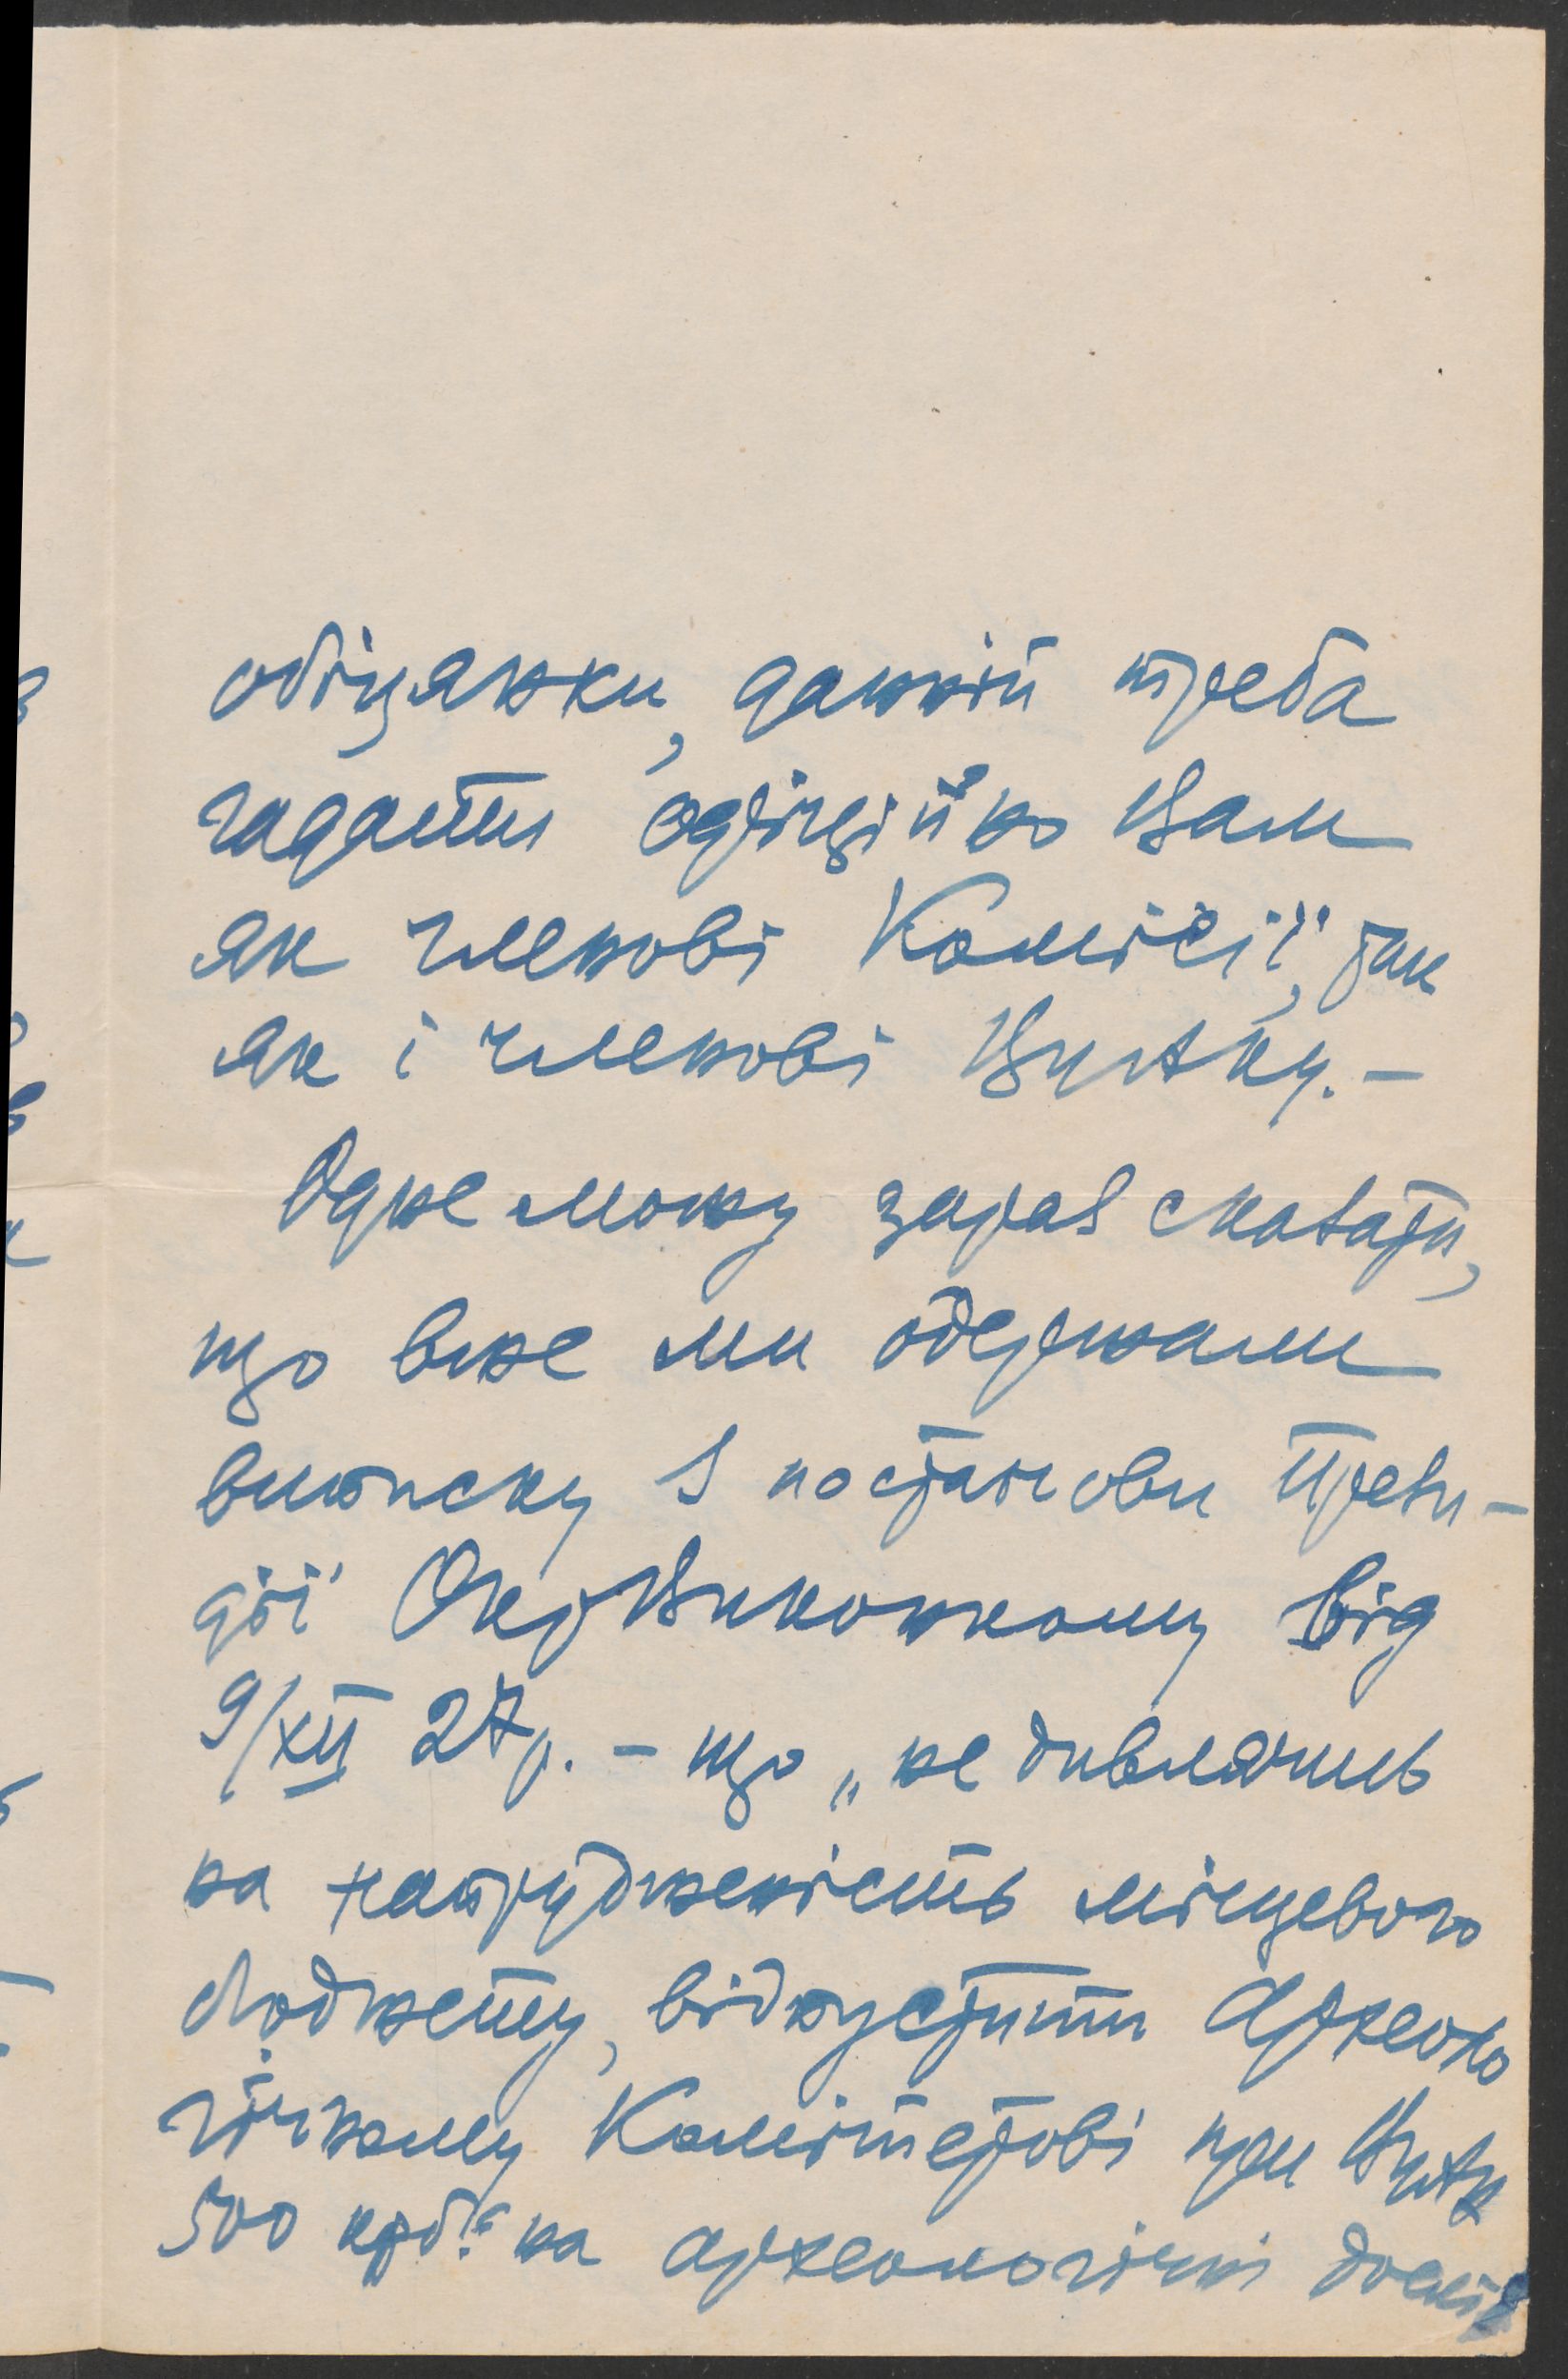 обіцянки, данній треба
гадати офіційно Вам
як членові Комісії, так
як і членові Вуаку. –
Одже можу зараз сказати,
що вже ми одержали
виписку з постанови Прези-
дії ОкрВиконкому від
9/XII 27 р. – що „не дивлячись
на натрудженість місцевого
бюджету, відпустити Археоло
гічному Комітетові при Вуак
500 крб." на археологічні дослі